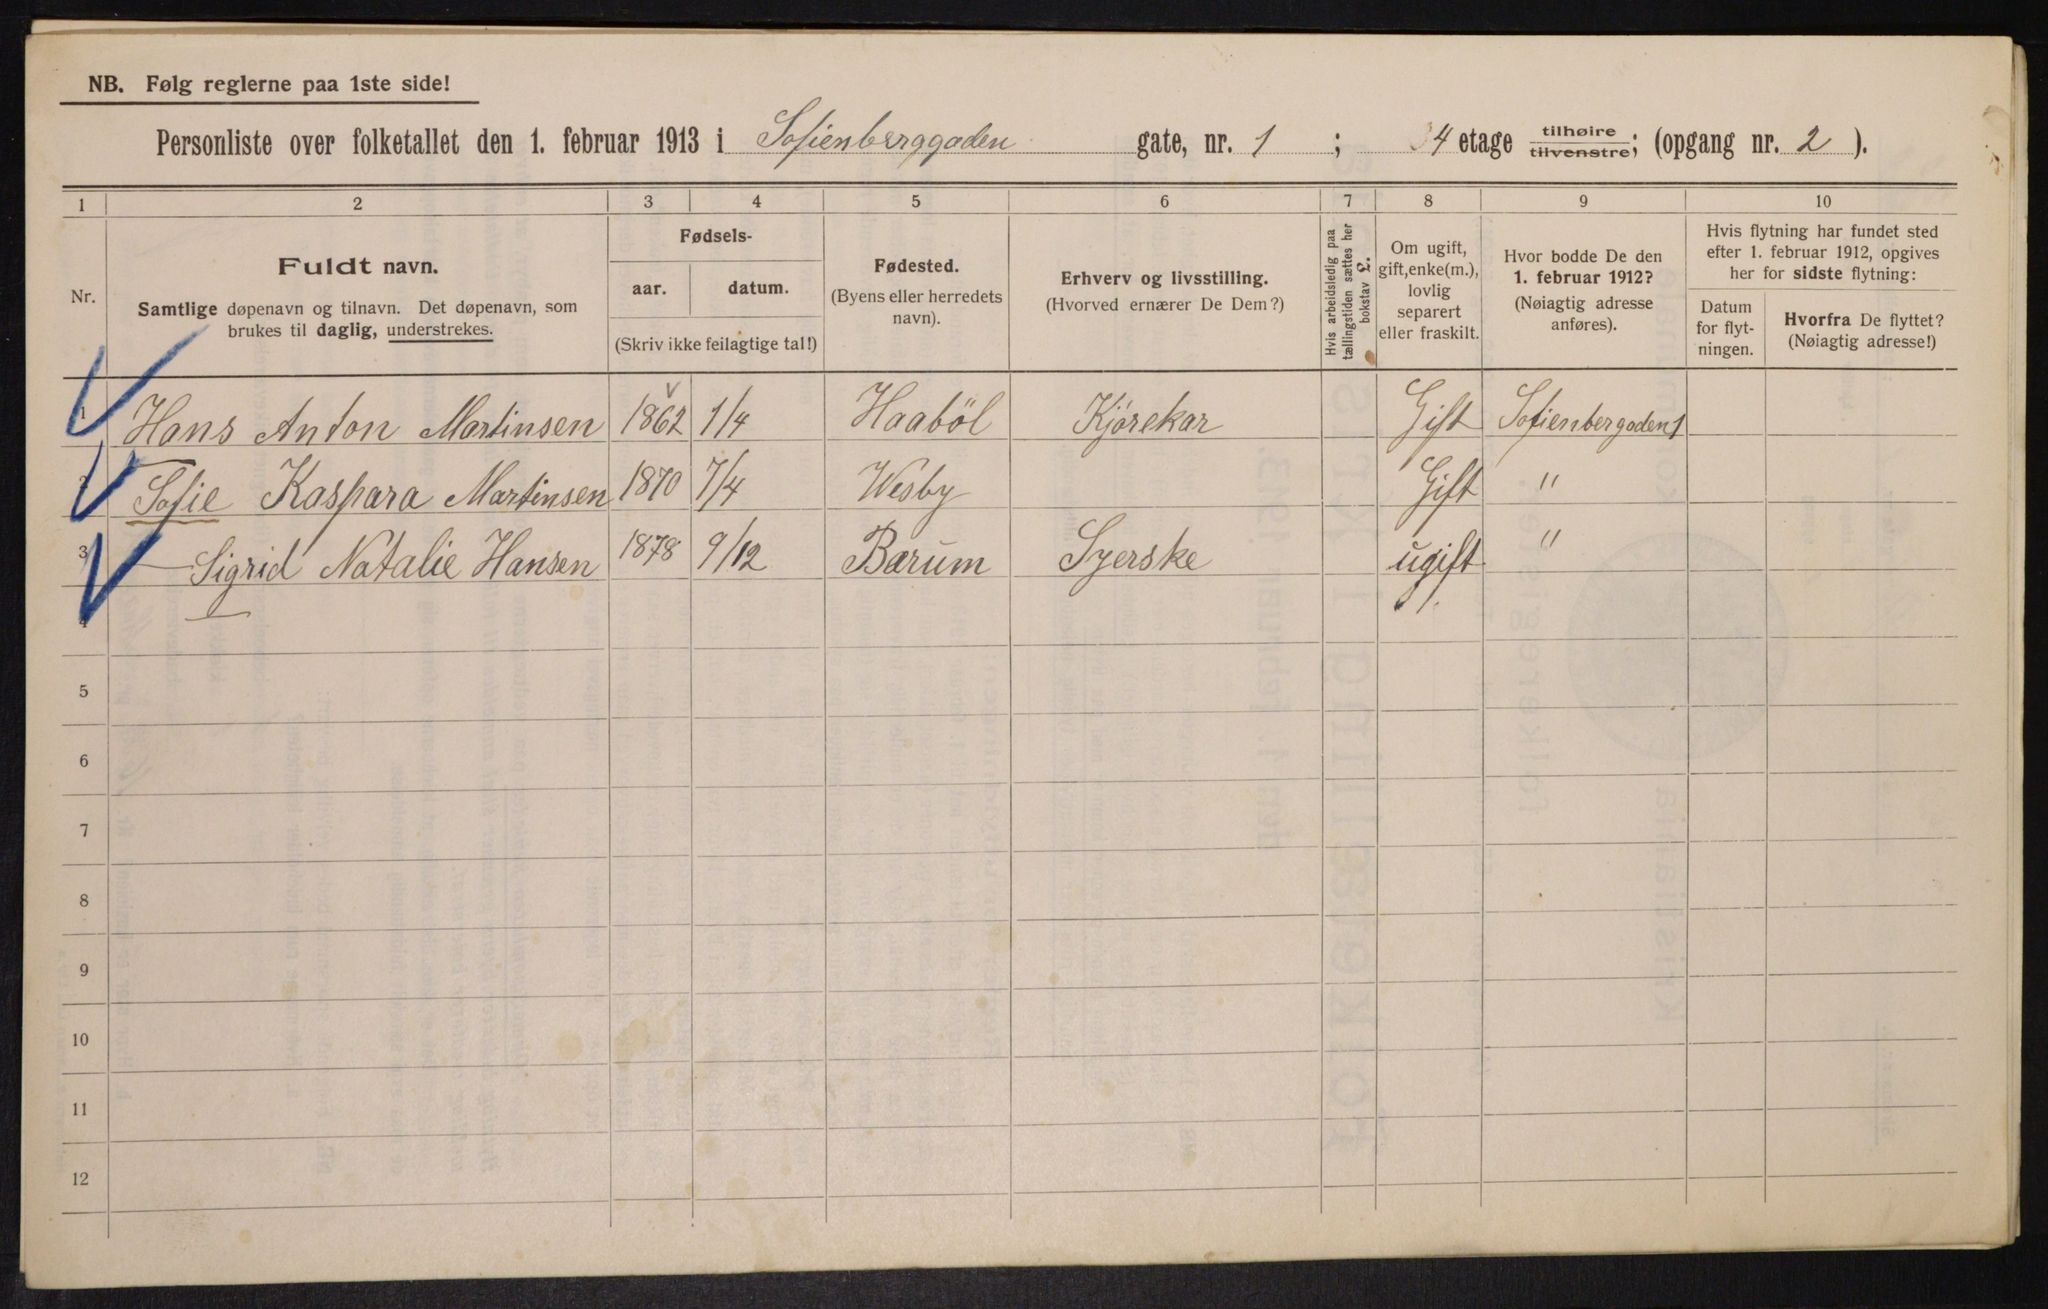 NB. Følg reglerne paa 1ste side!
Personliste over folketallet den 1. februar 1913 i Sofienberggaden gate, nr. 1 ; 4 etage tilhøire tilvenstre; (opgang nr. 2 ).
1 2 3 4 5 6 7 8 9 10
Nr.
Fuldt navn.
Samtlige døpenavn og tilnavn. Det døpenavn, som
brukes til daglig, understrekes.
Fødsels-
aar. datum.
(Skriv ikke feilagtige tal!)
Fødested.
(Byens eller herredets
navn).
Erhverv og livsstilling.
(Hvorved ernærer De Dem?)
Hvis arbeidsledig paa
tællingstiden sættes her
bokstav L.
Om ugift,
gift, enke(m.),
lovlig
separert
eller fraskilt.
Hvor bodde De den
1. februar 1912?
(Nøiagtig adresse
anføres).
Hvis flytning har fundet sted
efter 1. februar 1912, opgives
her for sidste flytning:
Datum
for flyt-
ningen.
Hvorfra De flyttet?
(Nøiagtig adresse!)
1 Hans Anton Martinsen 1862 1/4 Haaböl Kjörekar Gift Sofienbergaden 1
2 Sofie Kaspara Martinsen 1870 7/4 Wesby Gift "
3 Sigrid Natalie Hansen 1878 9/12 Bærum Syerske ugift "
4
5
6
7
8
9
10
11
12